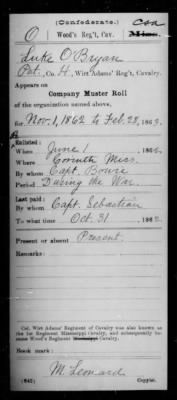 (Confederate.)
O Wood's Reg't, Cav. CSA Miss.
Luke O'Bryan
Pvt., Co. H, Wirt Adams' Reg't, Cavalry.
Appears on
Company Muster Roll
of the organization named above,
for Nov. 1, 1862 to Feb. 28, 1863.
Enlisted:
When June 1, 1862
Where Corinth Miss.
By whom Capt. Bowie
Period During the War
Last paid:
By whom Capt. Sebastian
To what time Oct. 31, 1862
Present or absent Present.
Remarks:
Col. Wirt Adams' Regiment of Cavalry was also known as
the 1st Regiment Mississippi Cavalry, and subsequently be-
came Wood's Regiment Mississippi Cavalry.
Book mark:
M. Leonard
(642) Copyist.